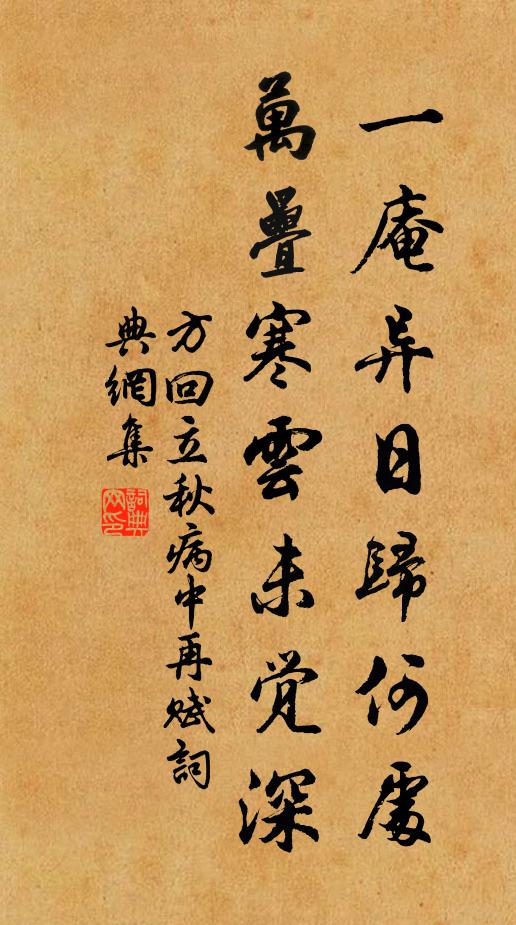 一庵异日歸何處
萬疊寒雲未觉深
方回立秋病中再赋詞
典網集
詞典网印